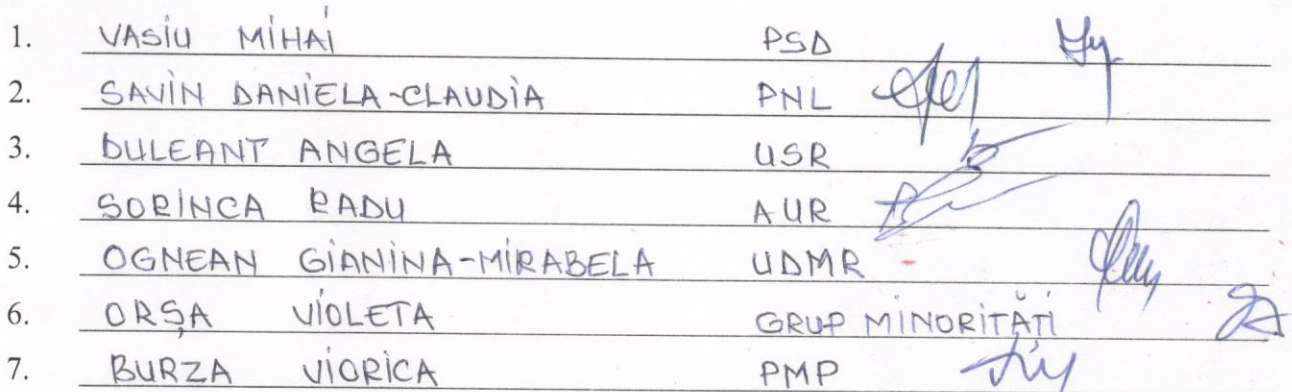 1. VASIU MIHAI PSD
2. SAVIN DANIELA-CLAUDIA PNL
3. DULEANT ANGELA USR
4. SORINCA RADU AUR
5. OGNEAN GIANINA-MIRABELA UDMR
6. ORȘA VIOLETA GRUP MINORITĂȚI
7. BURZA VIORICA PMP